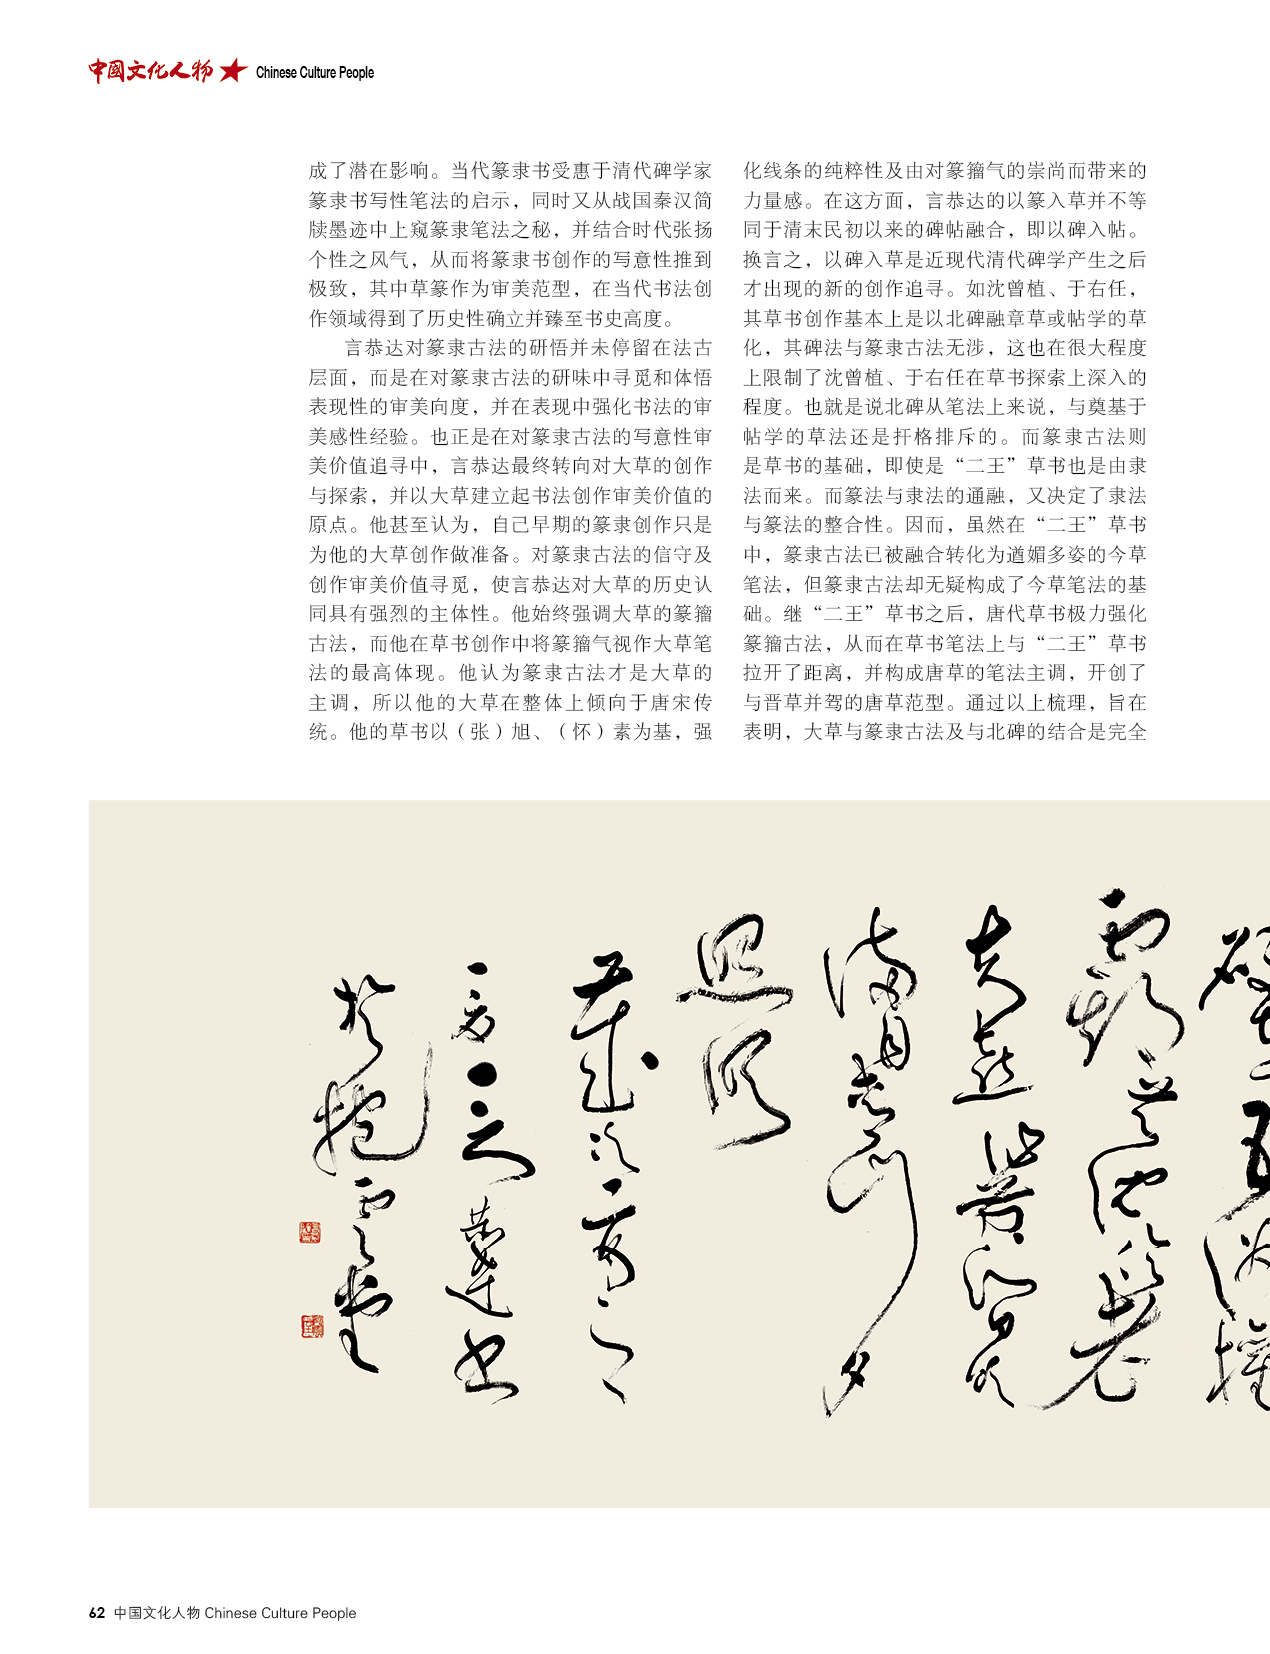 中國文化人物 Chinese Culture People
成了潜在影响。当代篆隶书受惠于清代碑学家
篆隶书写性笔法的启示，同时又从战国秦汉简
牍墨迹中上窥篆隶笔法之秘，并结合时代张扬
个性之风气，从而将篆隶书创作的写意性推到
极致，其中草篆作为审美范型，在当代书法创
作领域得到了历史性确立并臻至书史高度。
言恭达对篆隶古法的研悟并未停留在法古
层面，而是在对篆隶古法的研味中寻觅和体悟
表现性的审美向度，并在表现中强化书法的审
美感性经验。也正是在对篆隶古法的写意性审
美价值追寻中，言恭达最终转向对大草的创作
与探索，并以大草建立起书法创作审美价值的
原点。他甚至认为，自己早期的篆隶创作只是
为他的大草创作做准备。对篆隶古法的信守及
创作审美价值寻觅，使言恭达对大草的历史认
同具有强烈的主体性。他始终强调大草的篆籀
古法，而他在草书创作中将篆籀气视作大草笔
法的最高体现。他认为篆隶古法才是大草的
主调，所以他的大草在整体上倾向于唐宋传
统。他的草书以（张）旭、（怀）素为基，强
化线条的纯粹性及由对篆籀气的崇尚而带来的
力量感。在这方面，言恭达的以篆入草并不等
同于清末民初以来的碑帖融合，即以碑入帖。
换言之，以碑入草是近现代清代碑学产生之后
才出现的新的创作追寻。如沈曾植、于右任，
其草书创作基本上是以北碑融章草或帖学的草
化，其碑法与篆隶古法无涉，这也在很大程度
上限制了沈曾植、于右任在草书探索上深入的
程度。也就是说北碑从笔法上来说，与奠基于
帖学的草法还是扞格排斥的。而篆隶古法则
是草书的基础，即使是“二王”草书也是由隶
法而来。而篆法与隶法的通融，又决定了隶法
与篆法的整合性。因而，虽然在“二王”草书
中，篆隶古法已被融合转化为遒媚多姿的今草
笔法，但篆隶古法却无疑构成了今草笔法的基
础。继“二王”草书之后，唐代草书极力强化
篆籀古法，从而在草书笔法上与“二王”草书
拉开了距离，并构成唐草的笔法主调，开创了
与晋草并驾的唐草范型。通过以上梳理，旨在
表明，大草与篆隶古法及与北碑的结合是完全
62 中国文化人物 Chinese Culture People